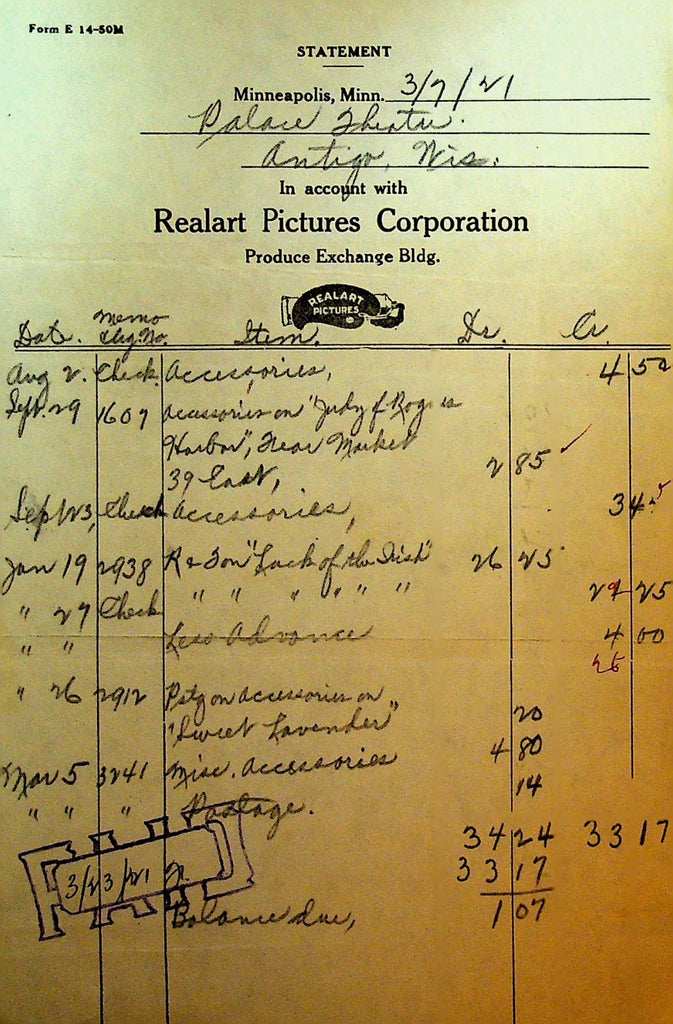 Form E 14-50M
STATEMENT
Minneapolis, Minn. 3/7/21
Palace Theatre.
Antigo, Wis.
In account with
Realart Pictures Corporation
Produce Exchange Bldg.
REALART
PICTURES
Date. Memo Chg. No. Item. Dr. Cr.
Aug 2. Check Accessories, 4 50
Sept. 29 1607 Accessories on "Judy of Rogues
Harbor", Fear Market
39 East, 2 85
Sept 23, Check Accessories, 3 45
Jan 19 2938 R & T on "Luck of the Irish" 26 25
" 27 Check " " " " " " 25
" " Less Advance 4 00
" 26 2912 Pstg on accessories on
"Sweet Lavender" 20
Mar 5 3241 Misc. accessories 4 80
" " " Postage. 14
34 24 33 17
33 17
3/23/21
Balance due, 1 07